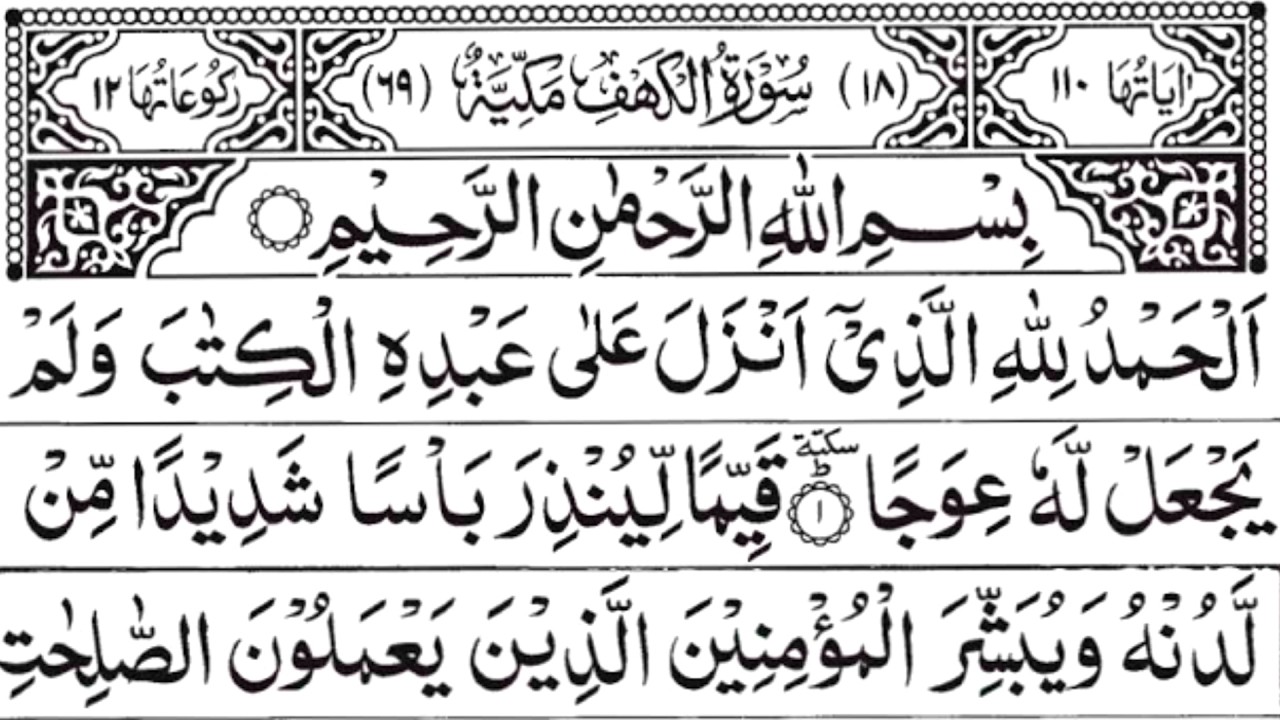 اٰيَاتُهَا ١١٠ (١٨) سُوْرَةُ الْكَهْفِ مَكِّيَّةٌ (٦٩) رُكُوْعَاتُهَا ١٢
بِسْمِ اللّٰهِ الرَّحْمٰنِ الرَّحِيْمِ
اَلْحَمْدُ لِلّٰهِ الَّذِيْٓ اَنْزَلَ عَلٰى عَبْدِهِ الْكِتٰبَ وَلَمْ
يَجْعَلْ لَّهٗ عِوَجًا ۜؕ ١ قَيِّمًا لِّيُنْذِرَ بَاْسًا شَدِيْدًا مِّنْ
لَّدُنْهُ وَيُبَشِّرَ الْمُؤْمِنِيْنَ الَّذِيْنَ يَعْمَلُوْنَ الصّٰلِحٰتِ